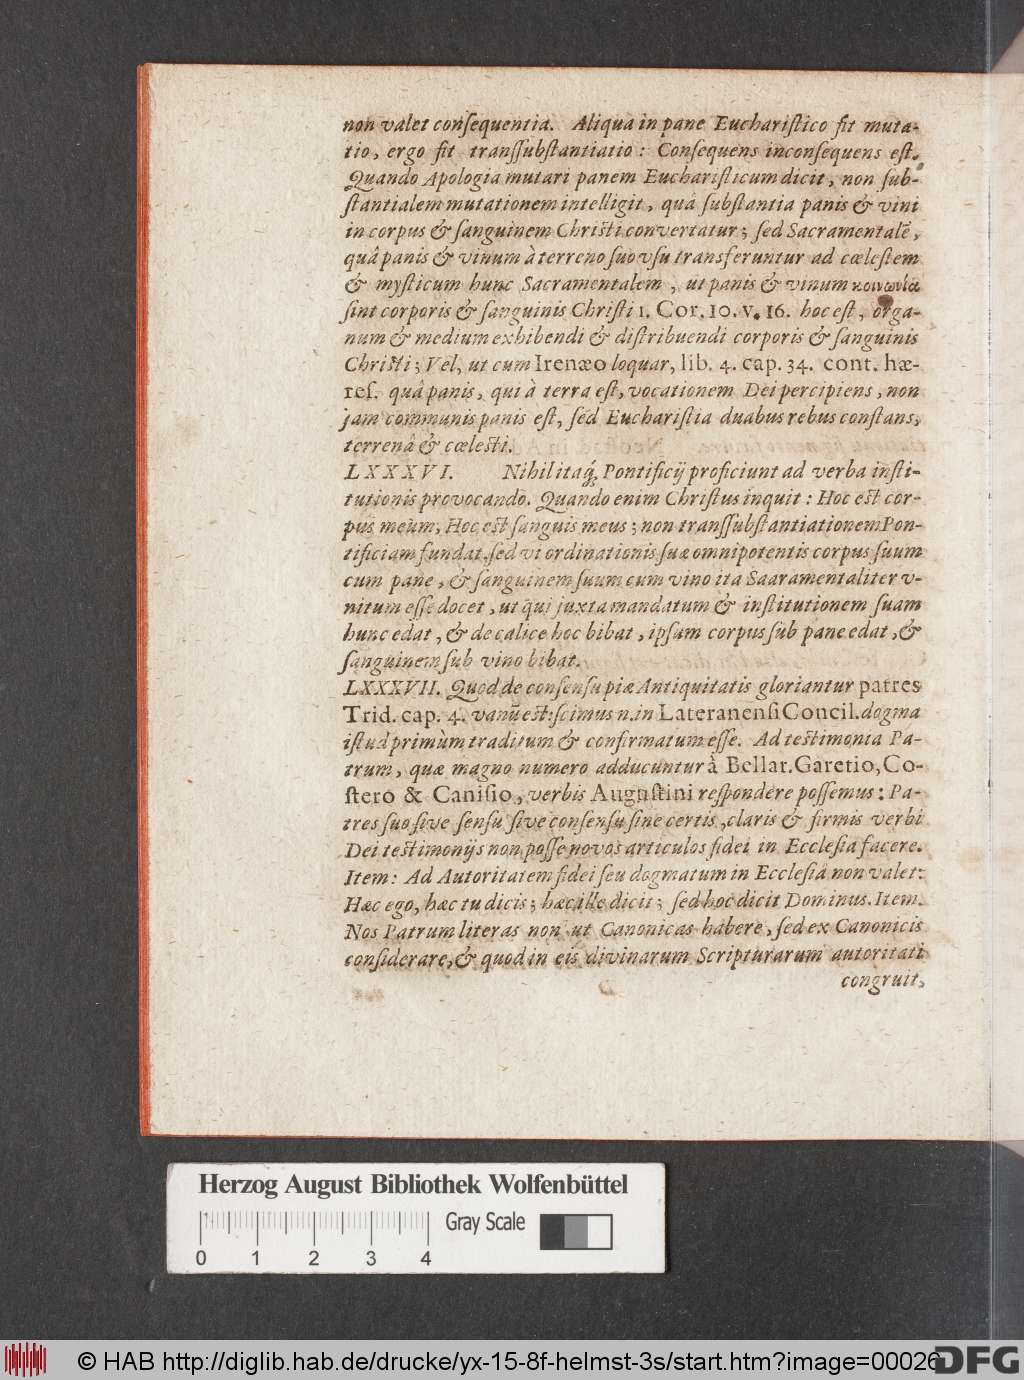 non valet conſequentia. Aliqua in pane Euchariſtico fit muta-
tio, ergo fit transſubſtantiatio: Conſequens inconſequens eſt.
Quando Apologia mutari panem Euchariſticum dicit, non ſub-
ſtantialem mutationem intelligit, quâ ſubſtantia panis & vini
in corpus & ſanguinem Chriſti convertatur; ſed Sacramentalẽ,
quâ panis & vinum à terreno ſuo vſu transferuntur ad cœleſtem
& myſticum hunc Sacramentalem, ut panis & vinum κοινωνία
ſint corporis & ſanguinis Chriſti 1. Cor. 10. v. 16. hoc eſt, orga-
num & medium exhibendi & diſtribuendi corporis & ſanguinis
Chriſti; Vel, ut cum Irenæo loquar, lib. 4. cap. 34. cont. hæ-
reſ. quâ panis, qui à terra eſt, vocationem Dei percipiens, non
jam communis panis eſt, ſed Euchariſtia duabus rebus conſtans,
terrenâ & cœleſti.
LXXXVI. Nihil itaq́; Pontificij proficiunt ad verba inſti-
tutionis provocando. Quando enim Chriſtus inquit: Hoc eſt cor-
pus meum, Hoc eſt ſanguis meus; non transſubſtantiationem Pon-
tificiam fundat, ſed vi ordinationis ſuæ omnipotentis corpus ſuum
cum pane, & ſanguinem ſuum cum vino ita Saaramentaliter v-
nitum eſſe docet, ut qui juxta mandatum & inſtitutionem ſuam
hunc edat, & de calice hoc bibat, ipſum corpus ſub pane edat, &
ſanguinem ſub vino bibat.
LXXXVII. Quod de conſenſu piæ Antiquitatis gloriantur patres
Trid. cap. 4. vanũ eſt: ſcimus n. in Lateranenſi Concil. dogma
iſtud primùm traditum & confirmatum eſſe. Ad teſtimonia Pa-
trum, quæ magno numero adducuntur à Bellar. Garetio, Co-
ſtero & Caniſio, verbis Auguſtini reſpondere poſſemus: Pa-
tres ſuo ſive ſenſu ſive conſenſu ſine certis, claris & firmis verbi
Dei teſtimonijs non poſſe novos articulos fidei in Eccleſia facere.
Item: Ad Autoritatem fidei ſeu dogmatum in Eccleſiâ non valet:
Hæc ego, hæc tu dicis; hæc ille dicit; ſed hoc dicit Dominus. Item.
Nos Patrum literas non ut Canonicas habere, ſed ex Canonicis
conſiderare, & quod in eis divinarum Scripturarum autoritati
congruit,
Herzog August Bibliothek Wolfenbüttel
Gray Scale
0 1 2 3 4
© HAB http://diglib.hab.de/drucke/yx-15-8f-helmst-3s/start.htm?image=00026
DFG